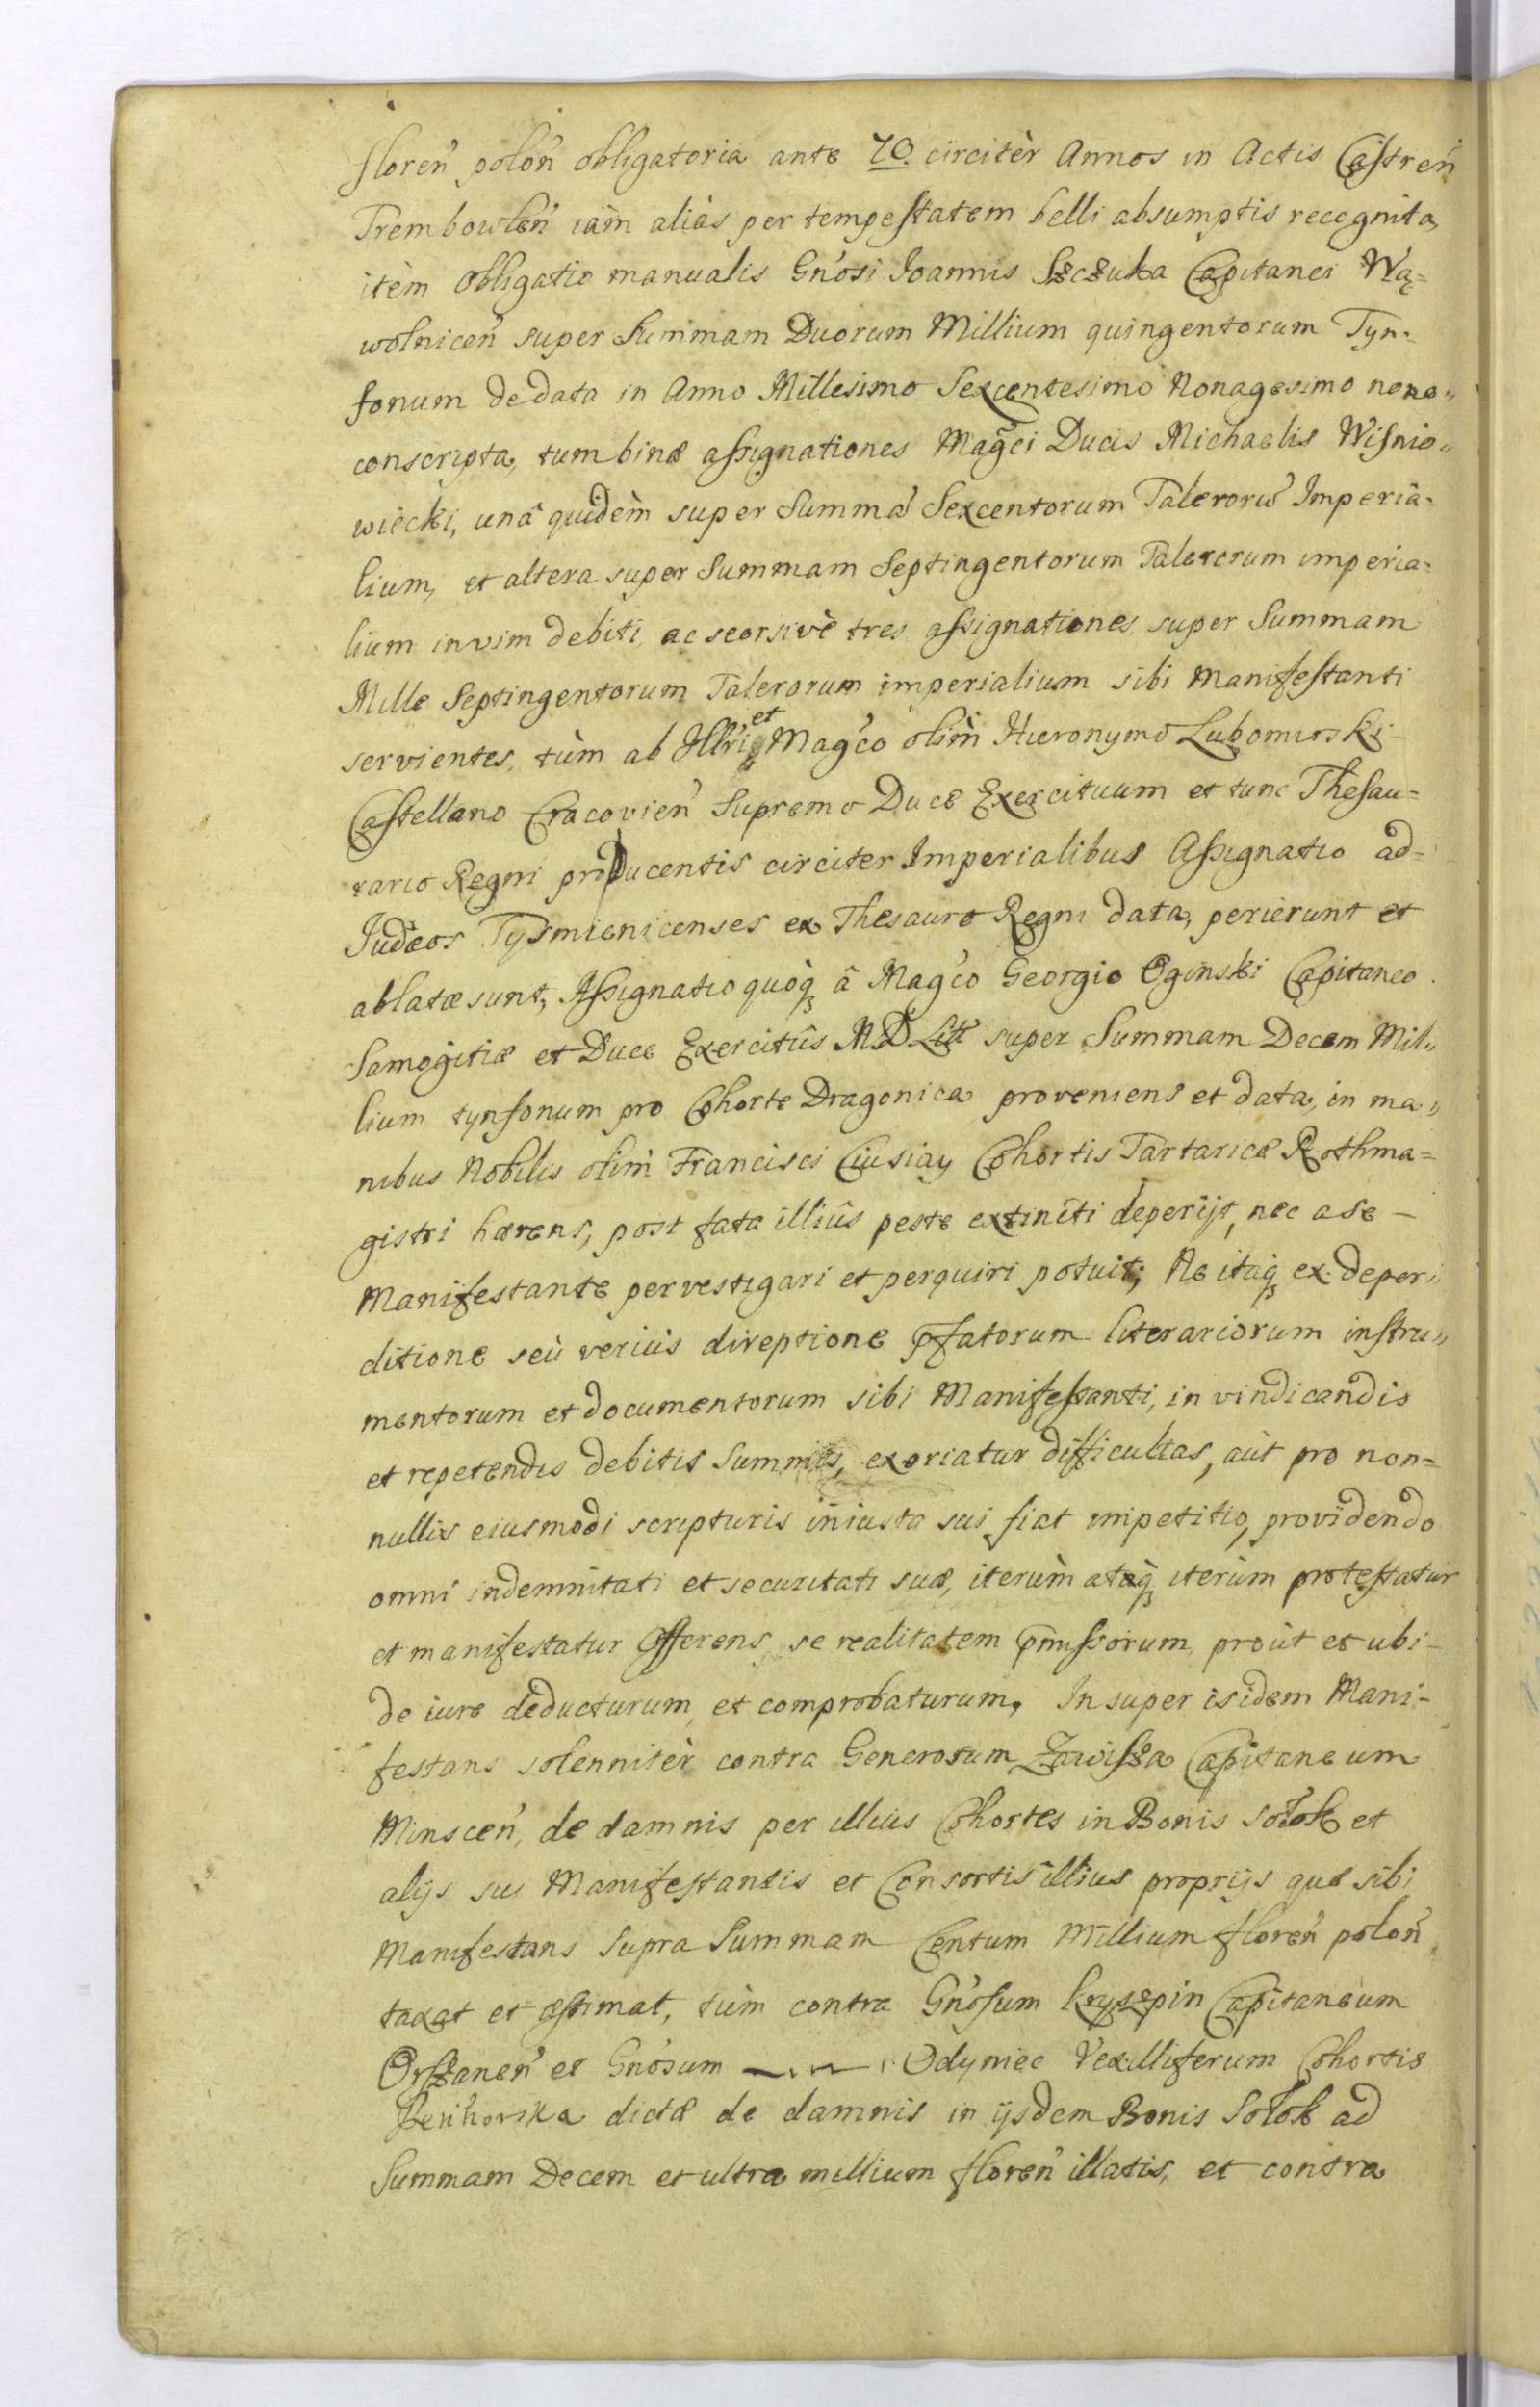 floreñ poloñ obligatoria ante 70. circitèr Annos in Actis Castreñ
Trembowleñ iàm aliàs per tempestatem belli absumptis recognita,
itèm Obligatio manualis Gn̄osi Joannis Szczuka Capitanei Wą=
wolniceñ super Summam Duorum Millium quingentorum Tyn=
fonum de data in Anno Millesimo Sexcentesimo Nonagesimo nono„
conscripta, tum binæ assignationes Mag̃ci Ducis Michaelis Wisnio„
wiecki, unâ quidèm super Summã Sexcentorum Talerorũ Imperia=
lium, et altera super Summam Septingentorum Talerorum imperia=
lium in vim debiti, ac seorsivè tres assignationes, super Summam
Mille Septingentorum Talerorum imperialium sibi Manifestanti
servientes, tùm ab Illr̃i et Mag̃co olim̀ Hieronymo Lubomirski
Castellano Cracovieñ Supremo Duce Exercituum et tunc Thesau=
rario Regni pro Ducentis circiter Imperialibus Assignatio ad=
Judæos Tyśmienicenses ex Thesauro Regni data, perierunt et
ablatæ sunt, Assignatio quòq̨ â Mag̃co Georgio Oginski Capitaneo
Samogitiæ et Duce Exercitûs M.D. Litt super Summam Decem Mil„
lium tynfonum pro Cohorte Dragonica proveniens et data, in ma„
nibus Nobilis olim̀ Francisci Ciusiay Cohortis Tartaricæ Rothma=
gistri hærens, post fata illiûs peste extincti deperijt, nec a se –
Manifestante pervestigari et perquiri potuit; Ne itaq̨ ex deperi„
ditione seù veriùs direptione p̄fatorum literariorum instru„
mentorum et documentorum sibi Manifestanti, in vindicandis
et repetendis debitis Summis, exoriatur difficultas, aùt pro non=
nullis eiusmodi scripturis iniusta sui fiat impetitio, providendo
omni indemnitati et securitati suæ, iterùm atq̨ iterùm protestatur
et manifestatur Offerens se realitatem p̄missorum, proùt et ubi –
de iure deducturum, et comprobaturum. In super isidem Mani–
festans solennitèr contra Generosum Zawisza Capitaneum
Minsceñ, de damnis per illius Cohortes in Bonis Sołok et
alijs sui Manifestantis et Consortis illius proprijs quæ sibi
Manifestans supra Summam Centum Millium floreñ poloñ
taxat et æstimat, tùm contra Gn̄osum Kryszpin Capitaneum
Orszaneñ et Gn̄osum —.— Odyniec Vexilliferum Cohortis
Petihorska dictæ de damnis in ijsdem Bonis Sołok ad
Summam Decem et ultra millium floreñ illatis, et contra